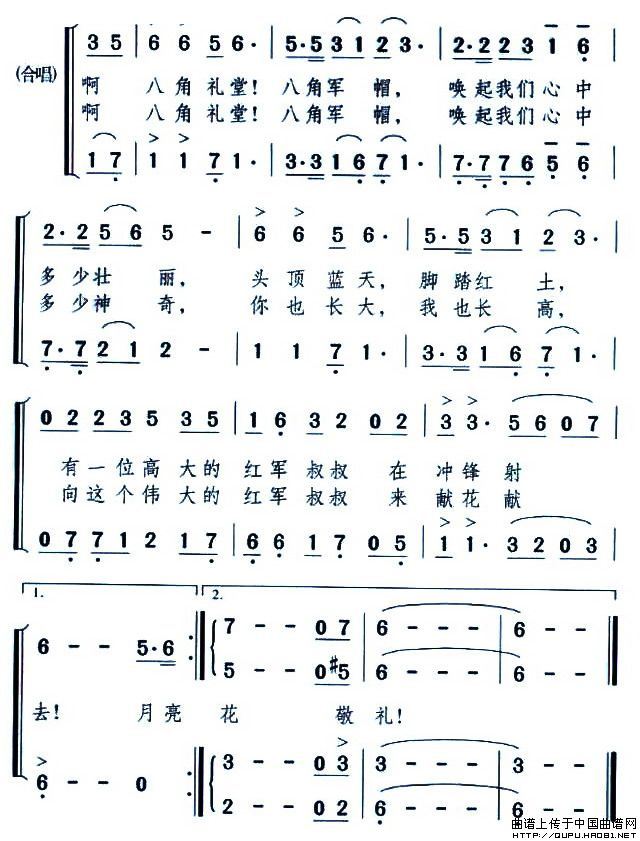 35 6 6 5 6· 5·5 3 1 2 3· 2·2 2 3 1 6
(合唱) 啊 八角礼堂！八角军帽，唤起我们心中
啊 八角礼堂！八角军帽，唤起我们心中
> >
1 7 1 1 7 1· 3·3 1 6 7 1· 7·7 7 6 5 6
> >
2·2 5 6 5 - 6 6 5 6· 5·5 3 1 2 3·
多少壮丽，头顶蓝天，脚踏红土，
多少神奇，你也长大，我也长高，
7·7 2 1 2 - 1 1 7 1· 3·3 1 6 7 1·
> >
0 2 2 3 5 3 5 1 6 3 2 0 2 3 3· 5 6 0 7
有一位高大的红军叔叔在冲锋射
向这个伟大的红军叔叔来献花献
> >
0 7 7 1 2 1 7 6 6 1 7 0 5 1 1· 3 2 0 3
1. 2.
6 - - 5·6 7 - - 0 7 6 - - - 6 - -
5 - - 0 #5 6 - - - 6 - -
去！月亮花 敬礼！
> >
6 - - 0 3 - - 0 3 3 - - - 3 - -
2 - - 0 3 6 - - - 6 - -
曲谱上传于中国曲谱网
HTTP://QUPU.HAO81.NET